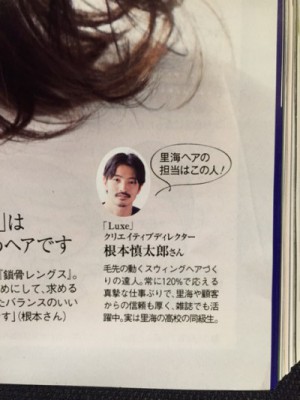 里海ヘアの
担当はこの人!
「Luxe」
クリエイティブディレクター
根本慎太郎さん
毛先の動くスウィングヘアづく
りの達人。常に120%で応える
真摯な仕事ぶりで、里海や顧客
からの信頼も厚く、雑誌でも活
躍中。実は里海の高校の同級生。
」は
ヘアです
「鎖骨レングス」。
めにして、求める
たバランスのいい
す」(根本さん)